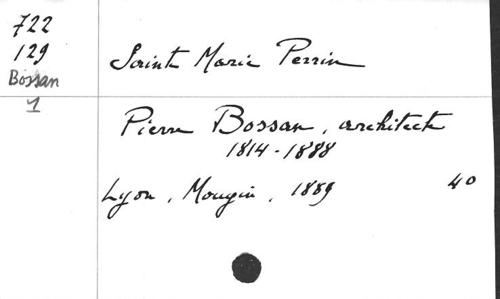 722
129
Bossan
1
Sainte Marie Perrin
Pierre Bossan, architecte
1814-1888
Lyon, Mougin, 1889 40